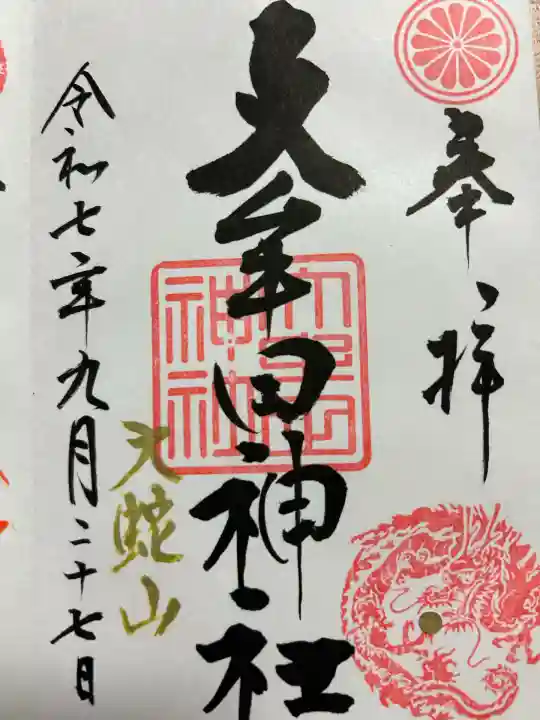 奉拝
大牟田神社
大蛇山
令和七年九月二十七日